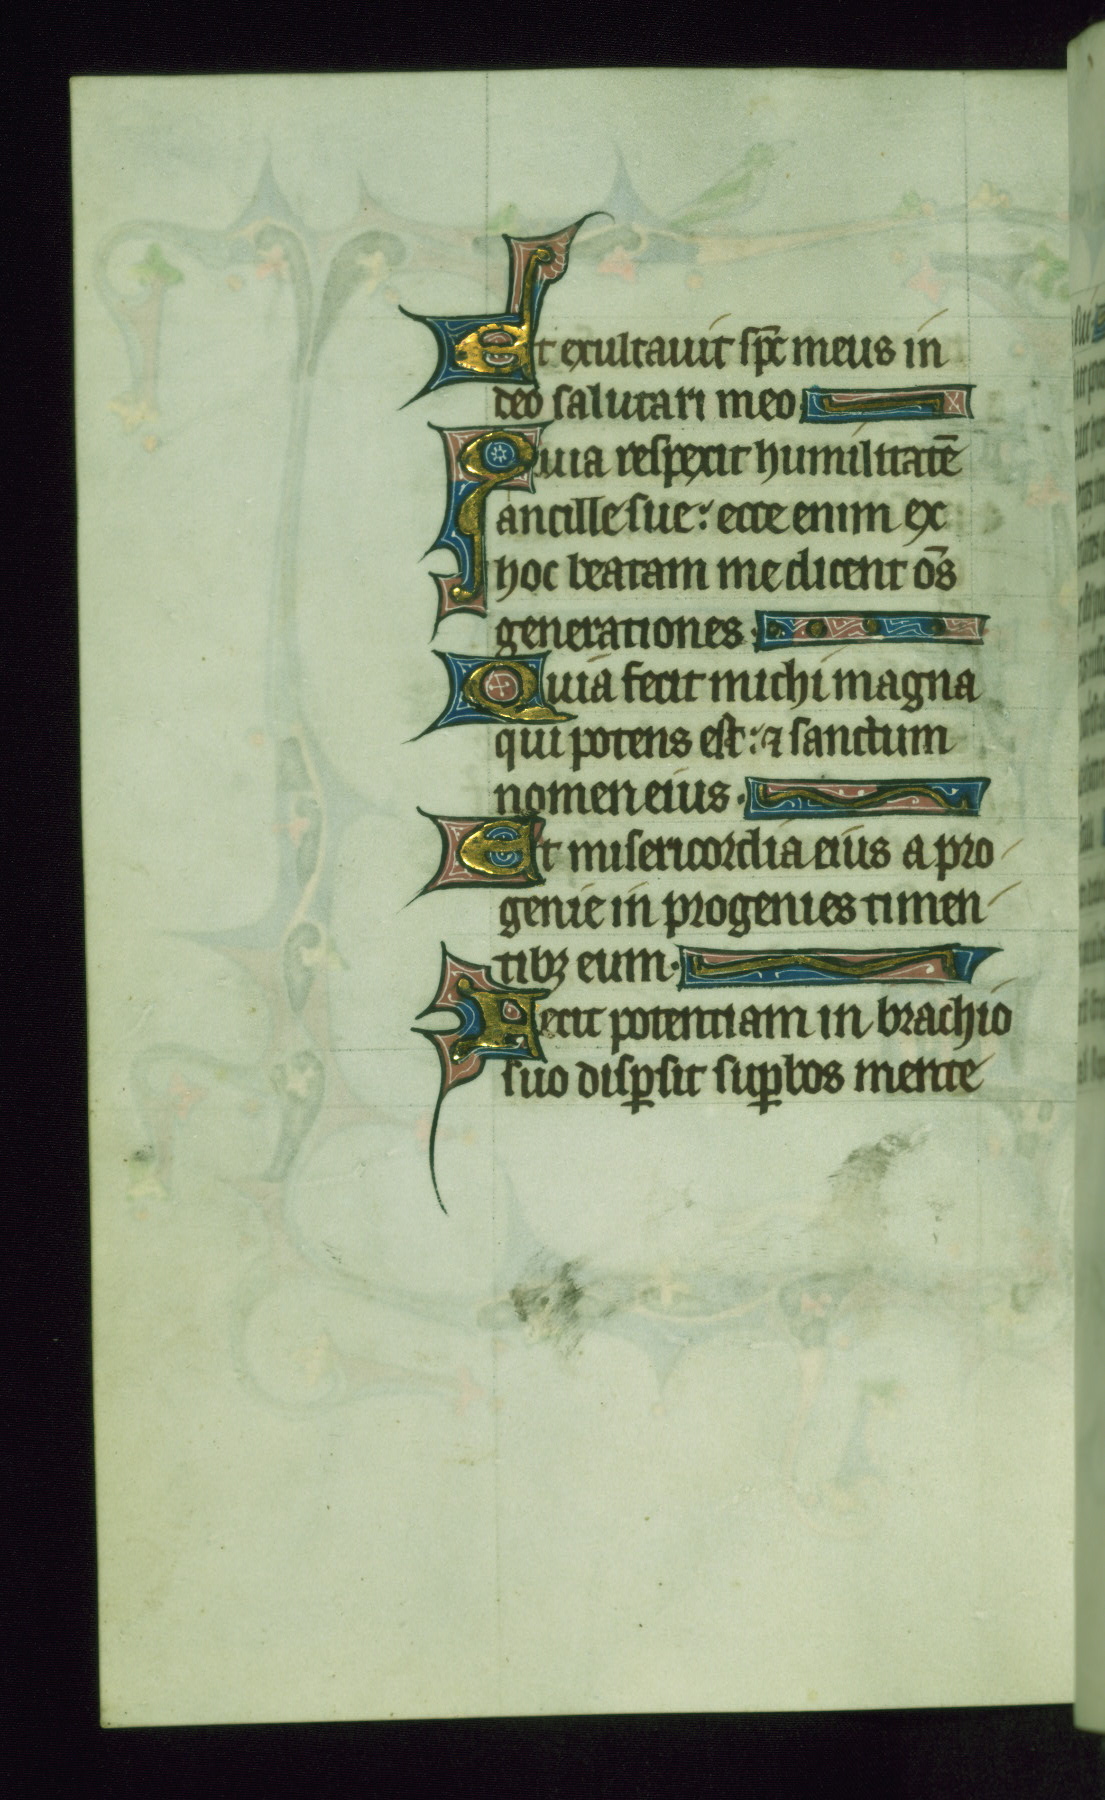 Et exultauit sp̄c meus in
deo salutari meo.
Quia respexit humilitatē
ancille sue: ecce enim ex
hoc beatam me dicent om̄s
generationes.
Quia fecit michi magna
qui potens est: ⁊ sanctum
nomen eius.
Et misericordia eius a pro
genie in progenies timen
tibꝫ eum.
Fecit potentiam in brachio
suo disꝑsit suꝑbos mente